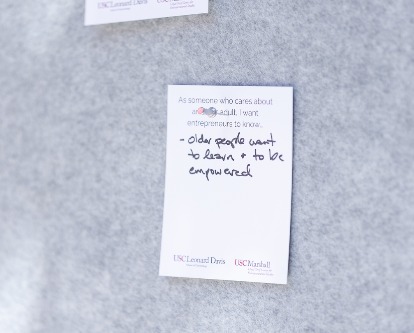 USC Leonard Davis
As someone who cares about
an adult, I want
entrepreneurs to know...
- older people want
to learn + to be
empowered
USC Leonard Davis USC Marshall